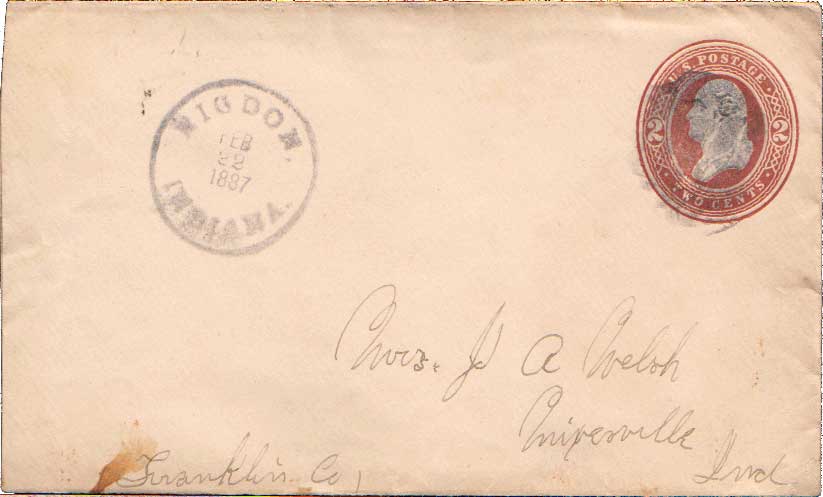 RIGDON.
FEB
22
1887
INDIANA.
U.S. POSTAGE
2 2
TWO CENTS
Mrs. J A Welsh
Mixersville
Franklin Co Ind